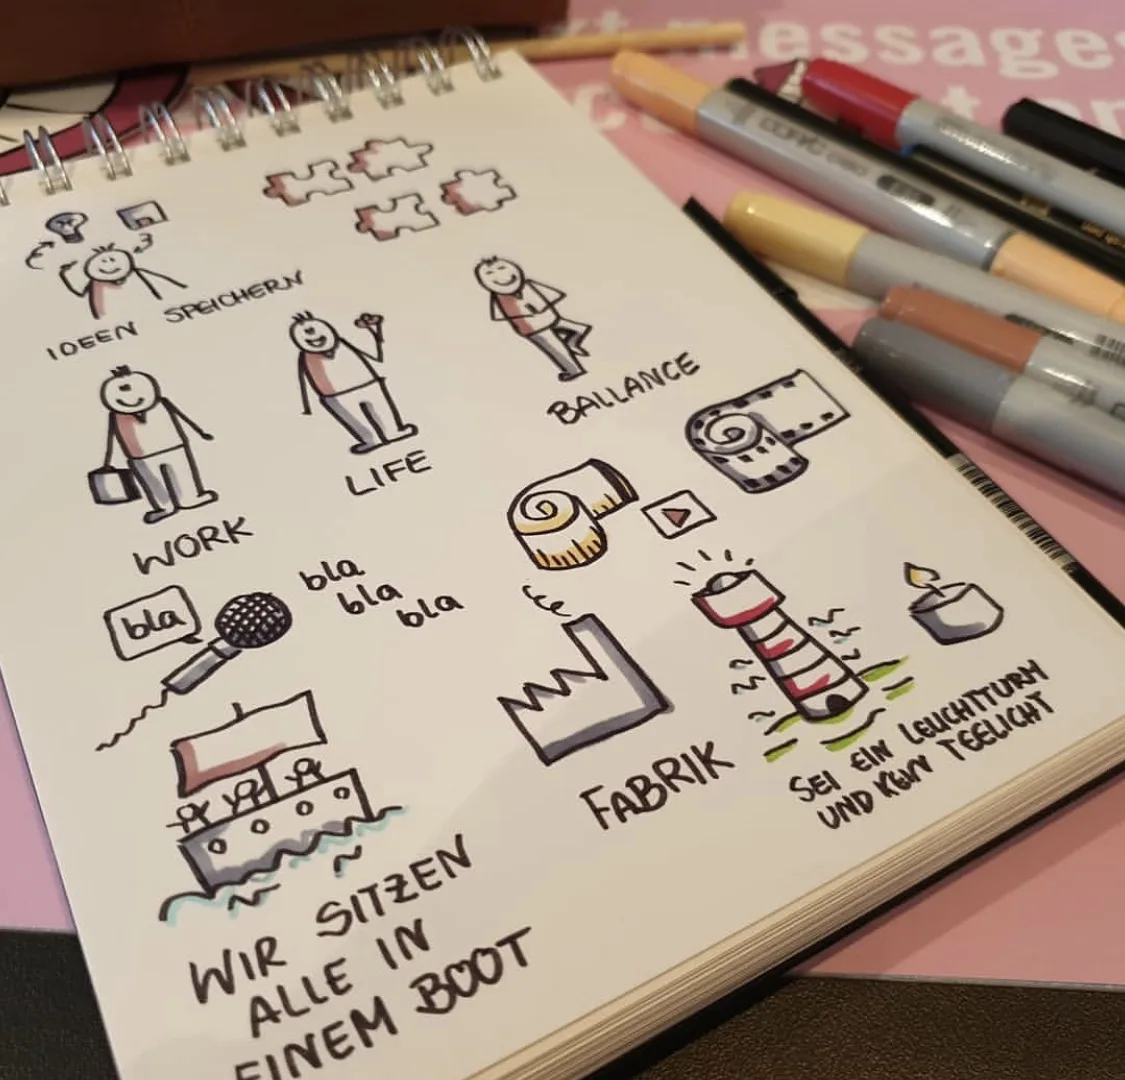 messages
IDEEN SPEICHERN
BALLANCE
LIFE
WORK
bla
bla
bla
bla
FABRIK
SEI EIN LEUCHTTURM
UND KEIN TEELICHT
WIR SITZEN
ALLE IN
EINEM BOOT